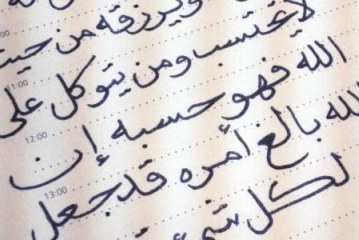 ويرزقه من حيث
لا يحتسب ومن يتوكل على
11:00
الله فهو حسبه إن
12:00
لله بالغ أمره قد جعل
13:00
لكل شيء